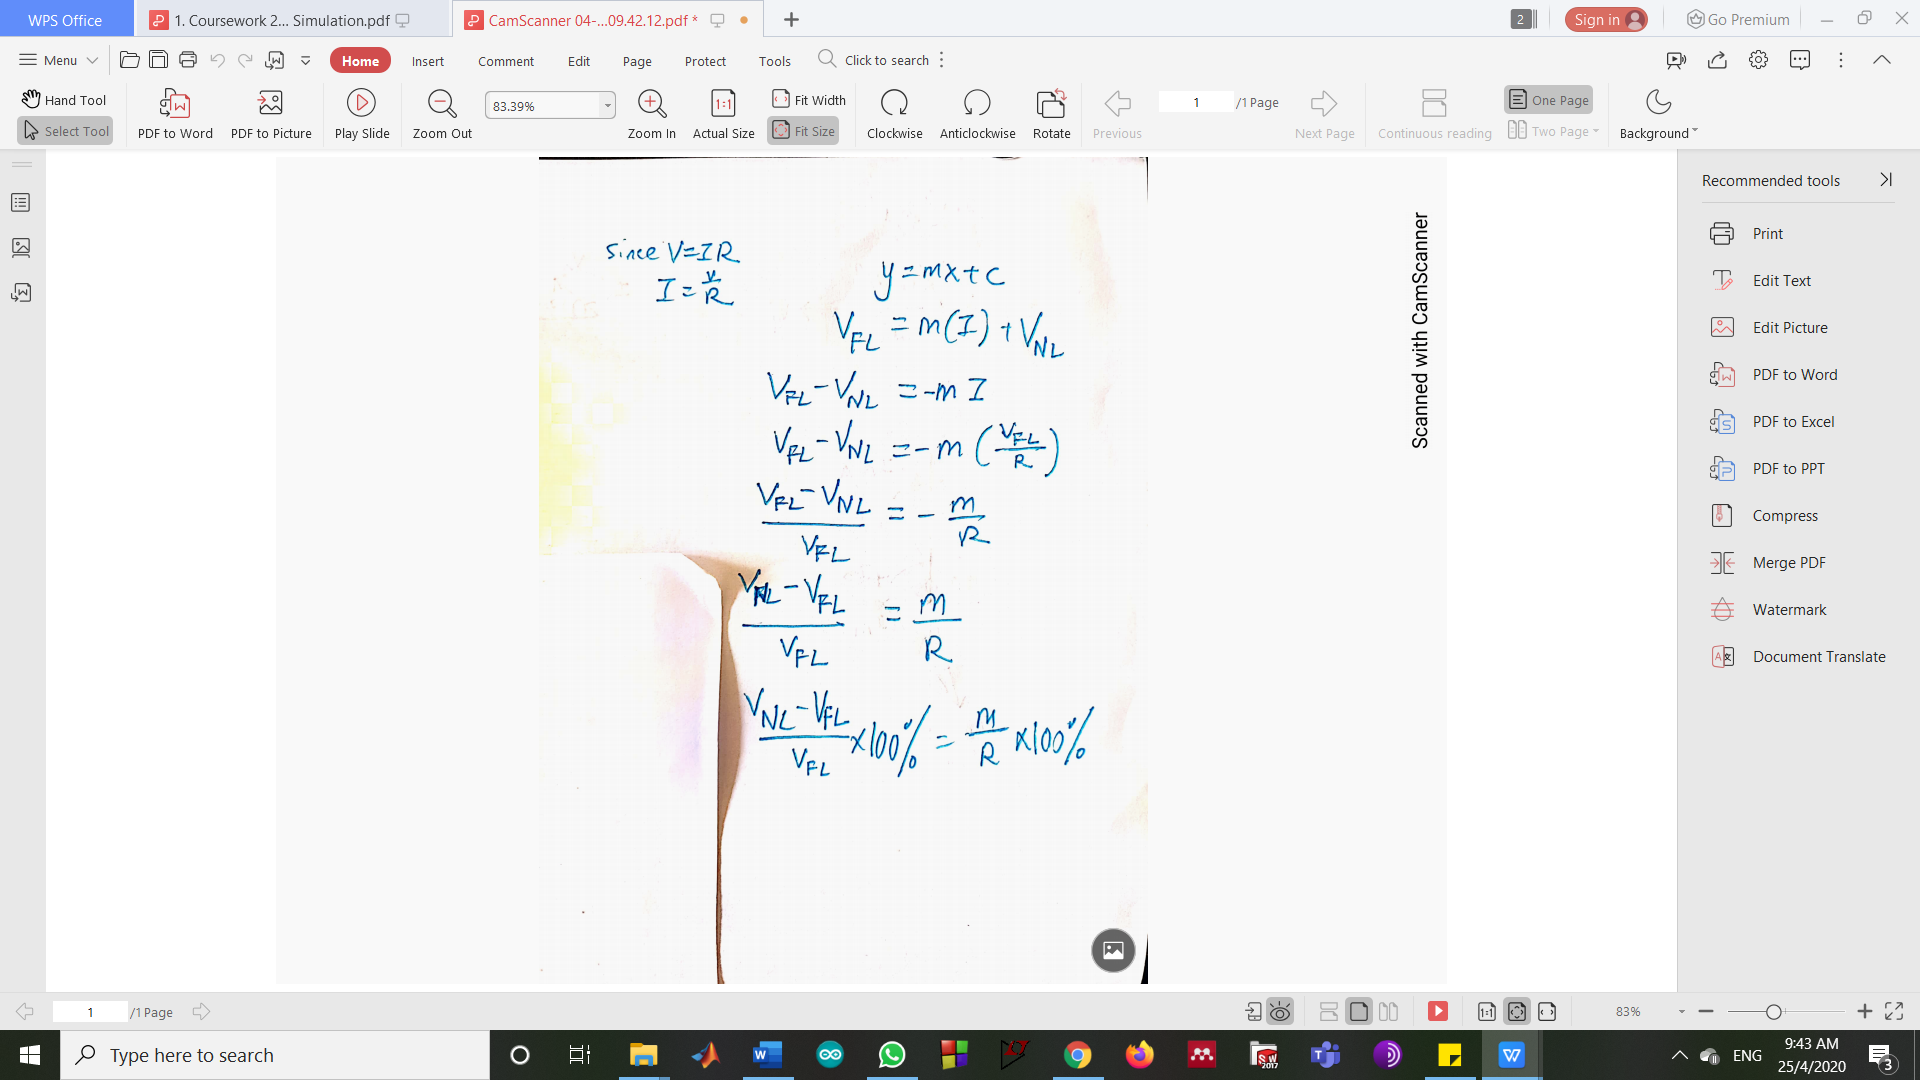 WPS Office
1. Coursework 2... Simulation.pdf
CamScanner 04-...09.42.12.pdf *
2
Sign in
Go Premium
Menu
Home
Insert
Comment
Edit
Page
Protect
Tools
Click to search
Hand Tool
Select Tool
PDF to Word
PDF to Picture
Play Slide
Zoom Out
83.39%
Zoom In
1:1
Actual Size
Fit Width
Fit Size
Clockwise
Anticlockwise
Rotate
Previous
1 /1 Page
Next Page
Continuous reading
One Page
Two Page
Background
since V=IR
I = V/R
y = mx + c
V_FL = m(I) + V_NL
V_FL - V_NL = -m I
V_FL - V_NL = -m (V_FL/R)
(V_FL - V_NL)/V_FL = - m/R
(V_NL - V_FL)/V_FL = m/R
(V_NL - V_FL)/V_FL ×100% = m/R ×100%
Scanned with CamScanner
Recommended tools
Print
Edit Text
Edit Picture
PDF to Word
PDF to Excel
PDF to PPT
Compress
Merge PDF
Watermark
Document Translate
1 /1 Page
1:1
83%
Type here to search
2017
ENG
9:43 AM
25/4/2020
3